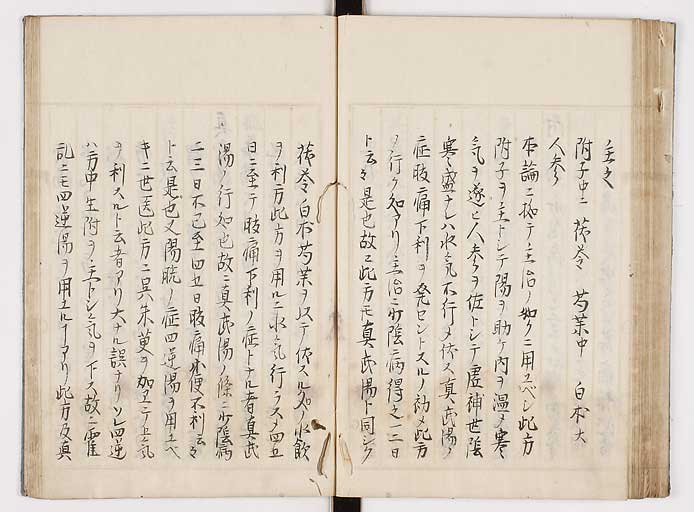 主之
附子中二 茯苓 芍薬中 白朮大
人参
本論ニ拠テ主治ノ如クニ用ユベシ此方
附子ヲ主トシテ陽ヲ助ケ内ヲ温メ寒
気ヲ逐ヒ人参ヲ佐トシテ
寒盛ナレハ水気不行メ依ス真武湯ノ
症腹痛下利ヲ発セントスルノ初メ此方
ヲ行ク知アリ主治ニ少陰病得之一二日
ト云々是也故ニ此方モ真武湯ト同シク
茯苓白朮芍薬ヲ以テ依スル処ノ水飲
ヲ利方此方ヲ用ルニ水気行ラスメ四五
日ニ至テ腹痛下利ノ症トナル者真武
湯ノ行知也故ニ真武湯ノ條ニ少陰病
二三日不已至四五日腹痛小便不利云々
ト云是也又陽脱ノ症四逆湯ヲ用ユベ
キニ世医此方ニ呉茱萸ヲ加エテ上気
ヲ利スルト云者アリ大ナル誤ナリソレ四逆
ハ方中生附ヲ主トシ気ヲ下ス故ニ霍
乱ニモ四逆湯ヲ用ユルヿアリ此方及真